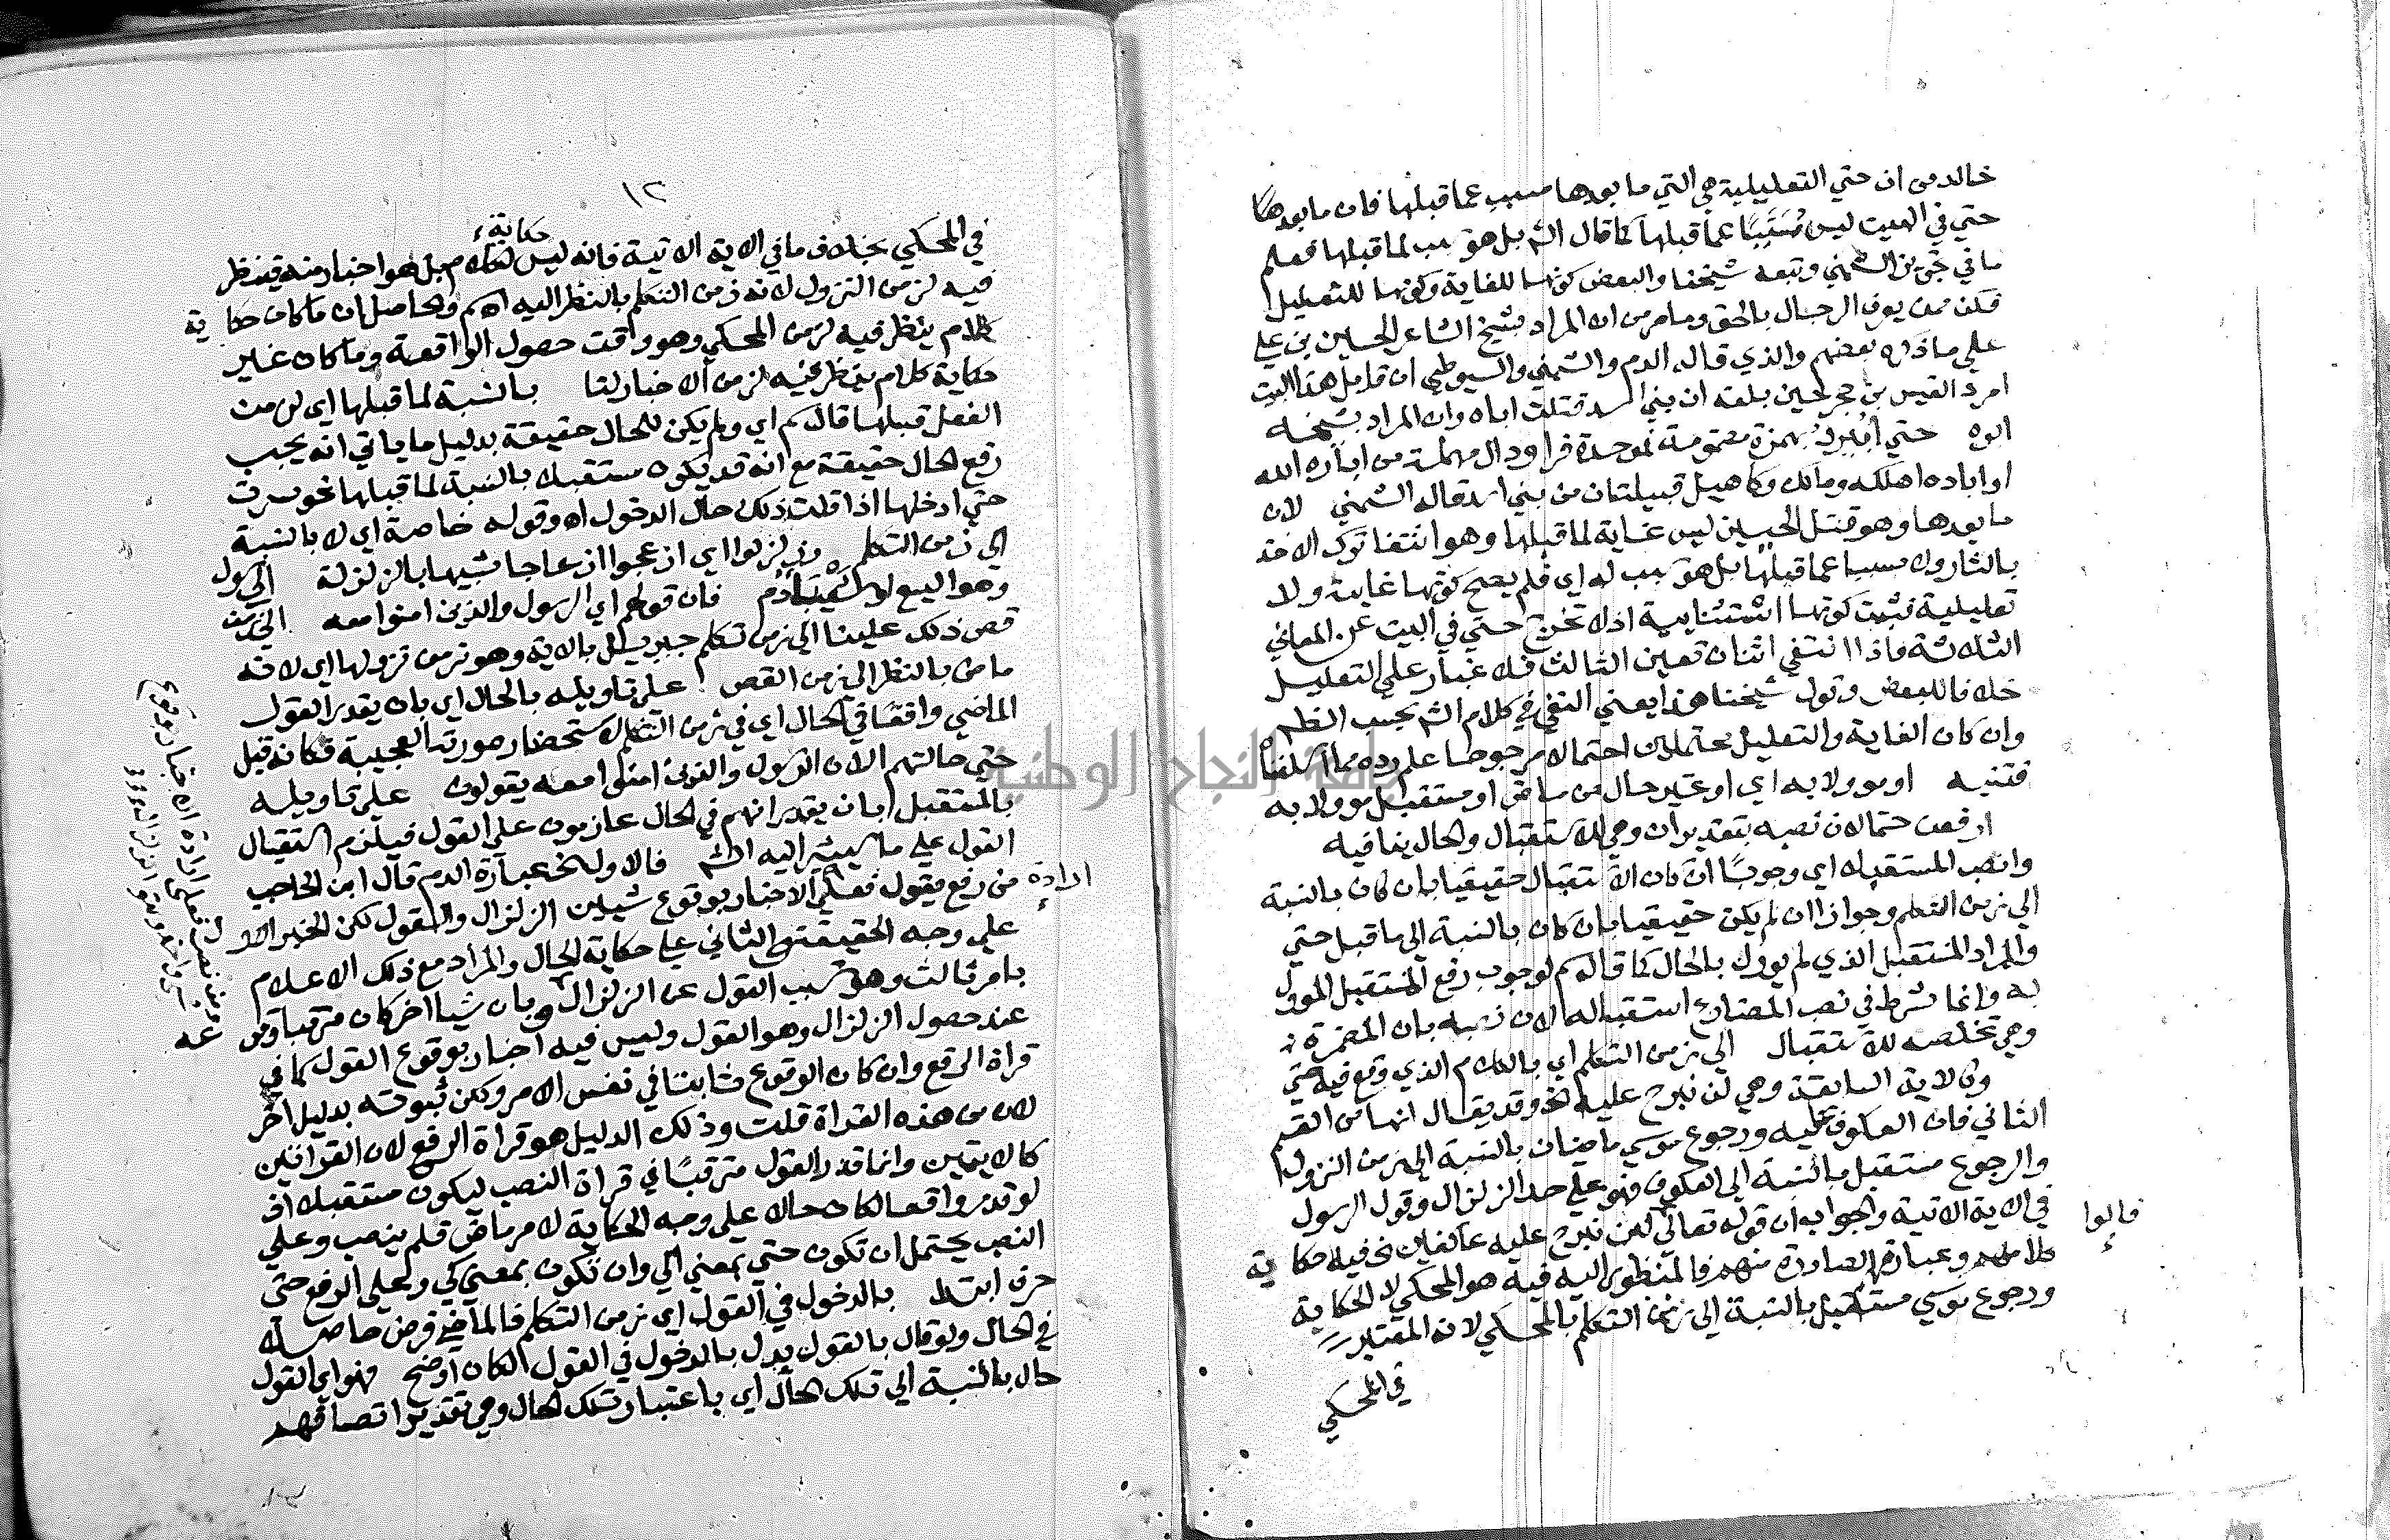 خالد من ان حتي التعليلية هي التي ما بعدها مسبب عما قبلها فان ما بعدها
حتي في البيت ليس مُسَبَّبًا عما قبلها كما قال الش بل هو سبب لما قبلها فعلم
ما في تجويز الشمني وتبعه شيخنا والبعض كونها للغاية وكونها للتعليل
فكن ممن يعرف الرجال بالحق وما مر من ان المراد بشيخ الشاعر الحسين بن علي
علي ما ذكره بعضهم والذي قاله الدم والشمني والسيوطي ان قايل هذا البيت
امرء القيس بن حجر لحين بلغه ان بني اسد قتلت اباه وان المراد بشيخه
ابوه حتي أبير بهمزة مضمومة فموحدة فرا ودال مهملة من اباره الله
او اباده اهلكه ومالك وكاهل قبيلتان من بني اسد قاله الشمني لان
ما بعدها وهو قتل الحيين ليس غاية لما قبلها وهو انتفا ترك الاخذ
بالثار ولا مسببا عما قبلها بل هو سبب له اي فلم يصح كونها غاية ولا
تعليلية فثبت كونها استثنايية اذ لا تخرج حتي في البيت عن المعاني
الثلاثة فاذا انتفي اثنان تعين الثالث فلا غبار علي التعليل
خلافا للبعض وقول شيخنا هذا يعني النفي في كلام الش بحسب الظاهر
وان كان الغاية والتعليل محتملين احتمالا مرجوحا علم رده مما اسلفنا
فتنبه او موولا به اي او غير حال من ماض او مستقبل موولا به
ارفعن حتما لان نصبه بتقدير ان وهي للاستقبال والحال ينافيه
وانصب المستقبلا اي وجوبًا ان كان الاستقبال حقيقيا بان كان بالنسبة
الي زمن التكلم وجوازا ان لم يكن حقيقيا بان كان بالنسبة الي ما قبل حتي
والمراد المستقبل الذي لم يوول بالحال كما قاله سم لوجوب رفع المستقبل الموول
به وانما شرط في نصب المضارع استقباله لان نصبه بان المضمرة
وهي تخلصه للاستقبال الي زمن التكلم اي بالكلام الذي وقع فيه حتي
وكالاية السابقة وهي لن نبرح عليه الخ وقد يقال انها من القسم
الثاني فان العكوف عليه ورجوع موسي ماضيان بالنسبة الي زمن النزول
والرجوع مستقبل بالنسبة الي العكوف فهو علي حد الزلزال وقول الرسول
في الاية الاتية والجواب ان قوله تعالي لن نبرح عليه عاكفين الخ فيه حكاية
قالوا
كلامهم وعبارتهم الصادرة منهم فالمنظور اليه فيه هو المحكي لا الحكاية
ورجوع موسي مستقبل بالنسبة الي زمن التكلم بالمحكي لانه المعتبر
في المحكي
١٢
حكاية
في المحكي بخلاف ما في الاية الاتية فانه ليس كلام بل هو اخبار منه فينظر
فيه لزمن النزول لانه زمن التكلم بالنظر اليه اه سم والحاصل ان ما كان حكاية
كلام ينظر فيه لزمن المحكي وهو وقت حصول الواقعة وما كان غير
حكاية كلام ينظر فيه لزمن الاخبار لنا بالنسبة لما قبلها اي لزمن
الفعل قبلها قاله سم اي ولم يكن للحال حقيقة بدليل ما ياتي انه يجب
رفع الحال حقيقة مع انه قد يكون مستقبلا بالنسبة لما قبلها نحو سرت
حتي ادخلها اذا قلت ذلك حال الدخول اه وقوله خاصة اي لا بالنسبة
الي زمن التكلم وزلزلوا اي ازعجوا ازعاجا شبيها بالزلزلة الرسول
وهو اليسع فان قولهم اي الرسول والذين امنوا معه الي زمن
قص ذلك علينا اي زمن تكلم جبريل بالاية وهو زمن نزولها اي لانه
ماض بالنظر الي زمن القص علي تاويله بالحال اي بان يقدر القول
الماضي واقعا في الحال اي في زمن التكلم لاستحضار صورته العجيبة فكانه قيل
حتي حالتهم الان الرسول والذين امنوا معه يقولون علي تاويله
بالمستقبل اي بان يقدر انهم في الحال عازمون علي القول فيلزم استقبال
القول علي ما يشير اليه الش فالاول الخ عبارة الدم قال ابن الحاجب
من رفع يقول فعلي الاخبار بوقوع شيئين الزلزال والقول لكن الخبر الاول
ارادة
علي وجه الحقيقة والثاني علي حكاية الحال والمراد مع ذلك الاعلام
بامر ثالث وهو تسبب القول عن الزلزال وبان شيا اخر كان مترقبا وقوعه
عند حصول الزلزال وهو القول وليس فيه اخبار بوقوع القول كما في
قراة الرفع وان كان الوقوع ثابتا في نفس الامر ولكن ثبوته بدليل اخر
لا من هذه القراة قلت وذلك الدليل هو قراة الرفع لان القراتين
كالايتين وانما قدر القول مترقبًا في قراة النصب ليكون مستقبلا اذ
لو قدر واقعا لكان حالا علي وجه الحكاية لامر ماض فلم ينصب وعلي
النصب يحتمل ان تكون حتي بمعني الي وان تكون بمعني كي وعلي الرفع حتي
حرف ابتدا بالدخول في القول اي زمن التكلم فالماضي فرض حاصلا
في الحال ولو قال بالقول بدل بالدخول في القول لكان اوضح فهو اي القول
حال بالنسبة الي تلك الحال اي باعتبار تلك الحال وهي تقدير اتصافهم